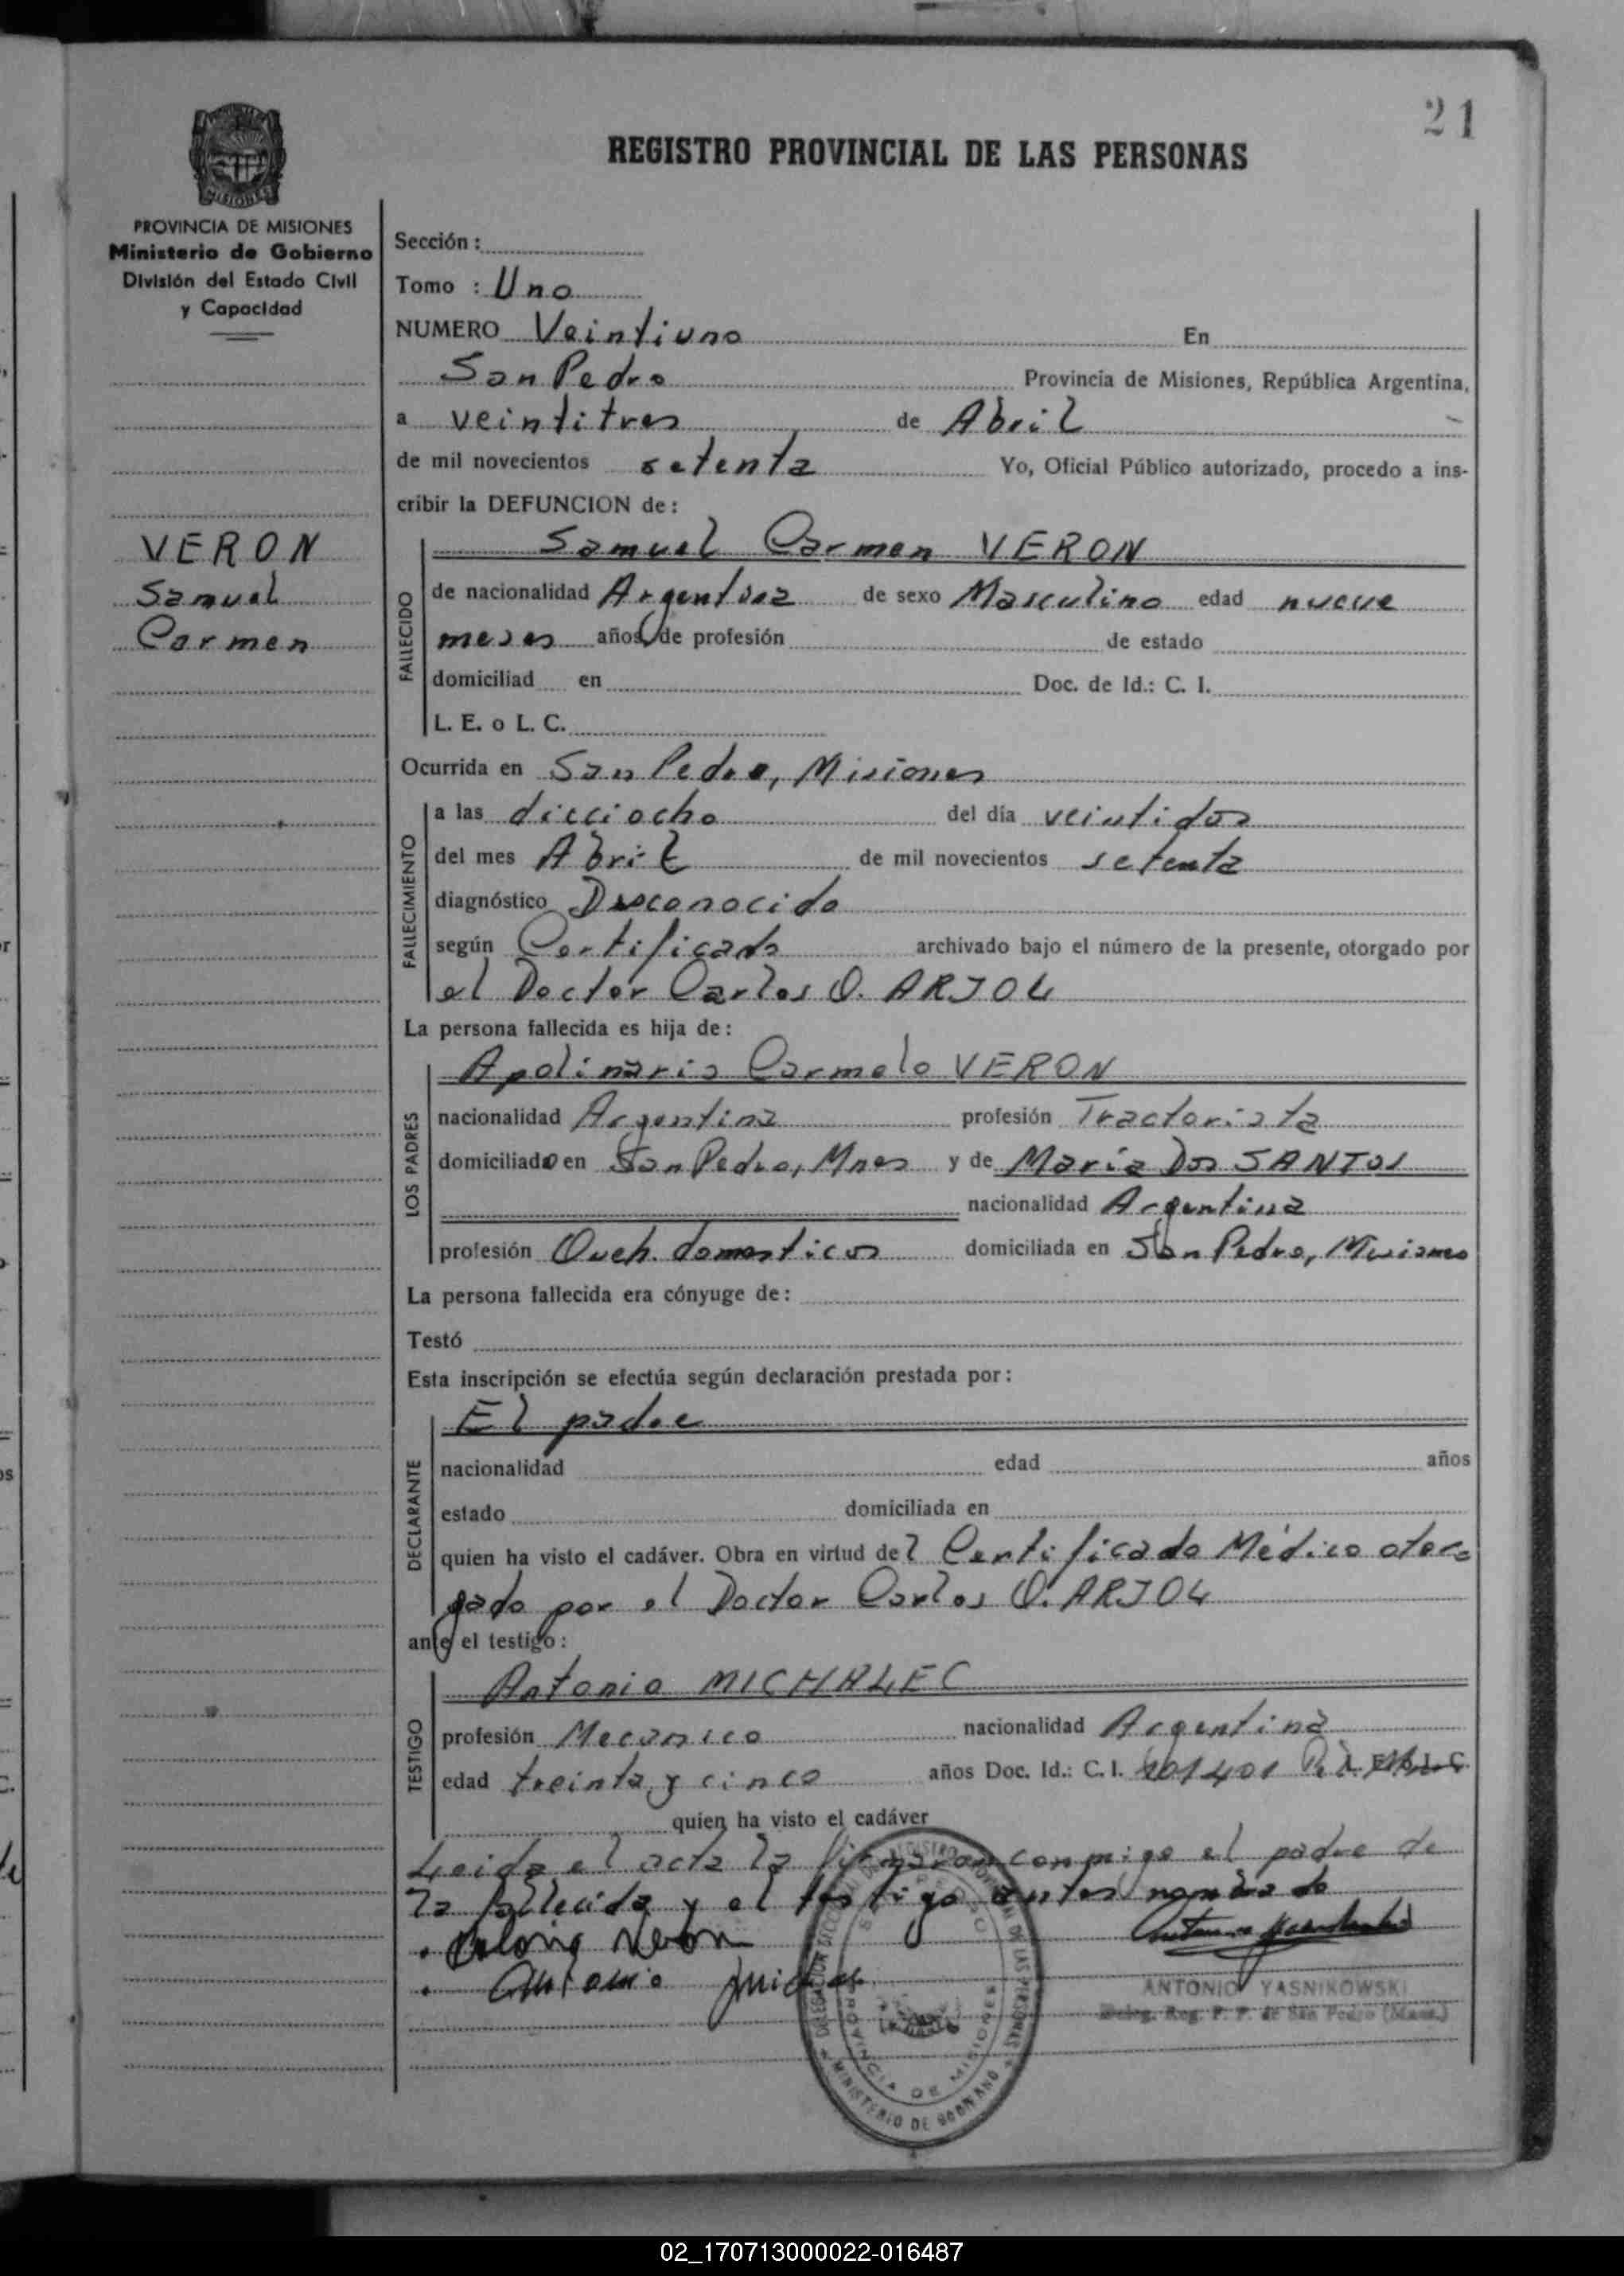 21
REGISTRO PROVINCIAL DE LAS PERSONAS
MISIONES
PROVINCIA DE MISIONES
Ministerio de Gobierno
División del Estado Civil
y Capacidad
VERON
Samuel
Carmen
Sección :
Tomo : Uno
NUMERO Veintiuno En
San Pedro Provincia de Misiones, República Argentina,
a veintitres de Abril
de mil novecientos setenta Yo, Oficial Público autorizado, procedo a ins-
cribir la DEFUNCION de :
Samuel Carmen VERON
FALLECIDO
de nacionalidad Argentina de sexo Masculino edad nueve
meses años de profesión de estado
domiciliad en Doc. de Id.: C. I.
L. E. o L. C.
Ocurrida en San Pedro, Misiones
FALLECIMIENTO
a las dieciocho del día veintidos
del mes Abril de mil novecientos setenta
diagnóstico Desconocido
según Certificado archivado bajo el número de la presente, otorgado por
el Doctor Carlos O. ARJOL
La persona fallecida es hija de :
LOS PADRES
Apolinario Carmelo VERON
nacionalidad Argentina profesión Tractorista
domiciliado en San Pedro, Mnes y de María Dos SANTOS
nacionalidad Argentina
profesión Queh. domesticos domiciliada en San Pedro, Misiones
La persona fallecida era cónyuge de :
Testó
Esta inscripción se efectúa según declaración prestada por :
DECLARANTE
El padre
nacionalidad edad años
estado domiciliada en
quien ha visto el cadáver. Obra en virtud del Certificado Médico otor-
gado por el Doctor Carlos O. ARJOL
ante el testigo :
TESTIGO
Antonio MICHALEC
profesión Mecanico nacionalidad Argentina
edad treinta y cinco años Doc. Id.: C. I. 101401
quien ha visto el cadáver
Leida el acta la firmaron conmigo el padre de
la fallecida y el testigo antes nombrado
Veron
Antonio
ANTONIO YASNIKOWSKI
Deleg. Reg. P. P. de San Pedro (Mnes.)
PROVINCIA DE MISIONES
MINISTERIO DE GOBIERNO
02_170713000022-016487